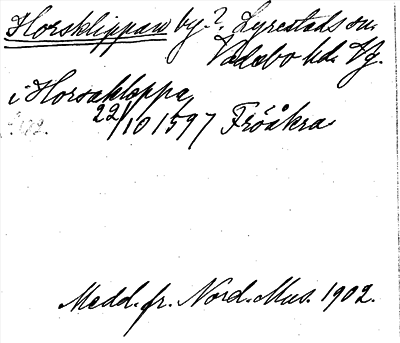 Horsklippan by.? Lyrestads sn.
Vadsbo hd. Vg.
i Horsakleppa
22/10 1597 Fröåkra
Medd. fr. Nord. Mus. 1902.